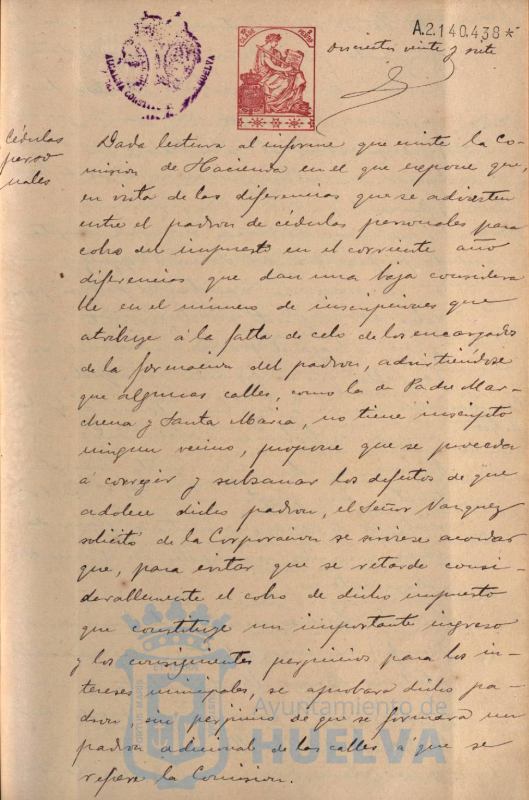 A.2.140.438*
doscientos veinte y siete
ALCALDIA CONSTITU HUELVA
Cédulas
perso
nales
Dada lectura al informe que emite la Co-
mision de Hacienda en el que expone que,
en vista de las diferencias que se advierten
entre el padron de cédulas personales para
cobro del impuesto en el corriente año
diferencias que dan una baja considera
ble en el número de inscripciones que
atribuye á la falta de celo de los encargados
de la formacion del padron, advirtiéndose
que algunas calles, como la de Padre Mar-
chena y Santa Maria, no tiene inscripto
ningun vecino, propone que se proceda
á corregir y subsanar los defectos de que
adolece dicho padron, el Señor Vazquez
solicitó de la Corporacion se sirviese acordar
que, para evitar que se retarde consi-
derablemente el cobro de dicho impuesto
que constituye un importante ingreso
y los consiguientes perjuicios para los in-
tereses municipales, se aprobara dicho pa-
dron, sin perjuicio de que se formara un
padron adicional de las calles á que se
refiere la Comision.
Ayuntamiento de
HUELVA